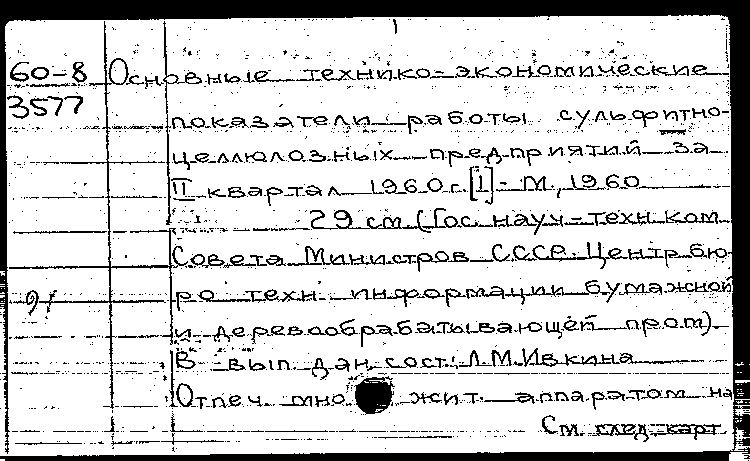 60-8 Основные технико-экономические
3577
показатели работы сульфитно-
целлюлозных предприятий за
II квартал 1960г. [1]- М., 1960
29 см (Гос. науч-техн. ком.
Совета Министров СССР. Центр. бю-
ро техн. информации бумажной
и деревообрабатывающей пром).
В вып. дан. сост.: Л.М.Ивкина
Отпеч. мно жит. аппаратом на
См. след. карт.